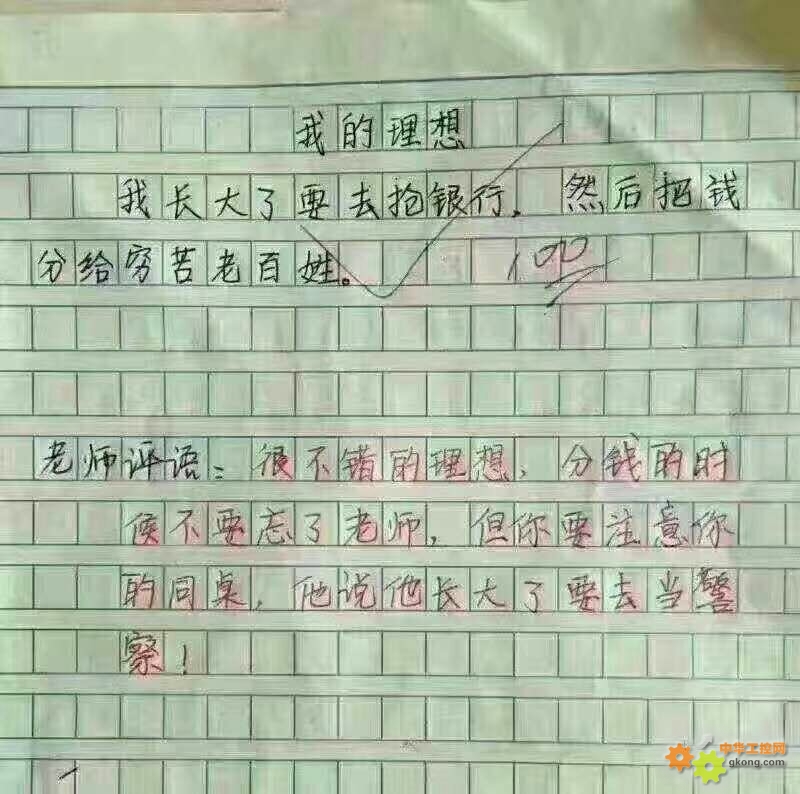 我的理想
我长大了要去抢银行，然后把钱
分给穷苦老百姓。 100
老师评语：很不错的理想，分钱的时
候不要忘了老师，但你要注意你
的同桌，他说他长大了要去当警
察！
中华工控网
gkong.com